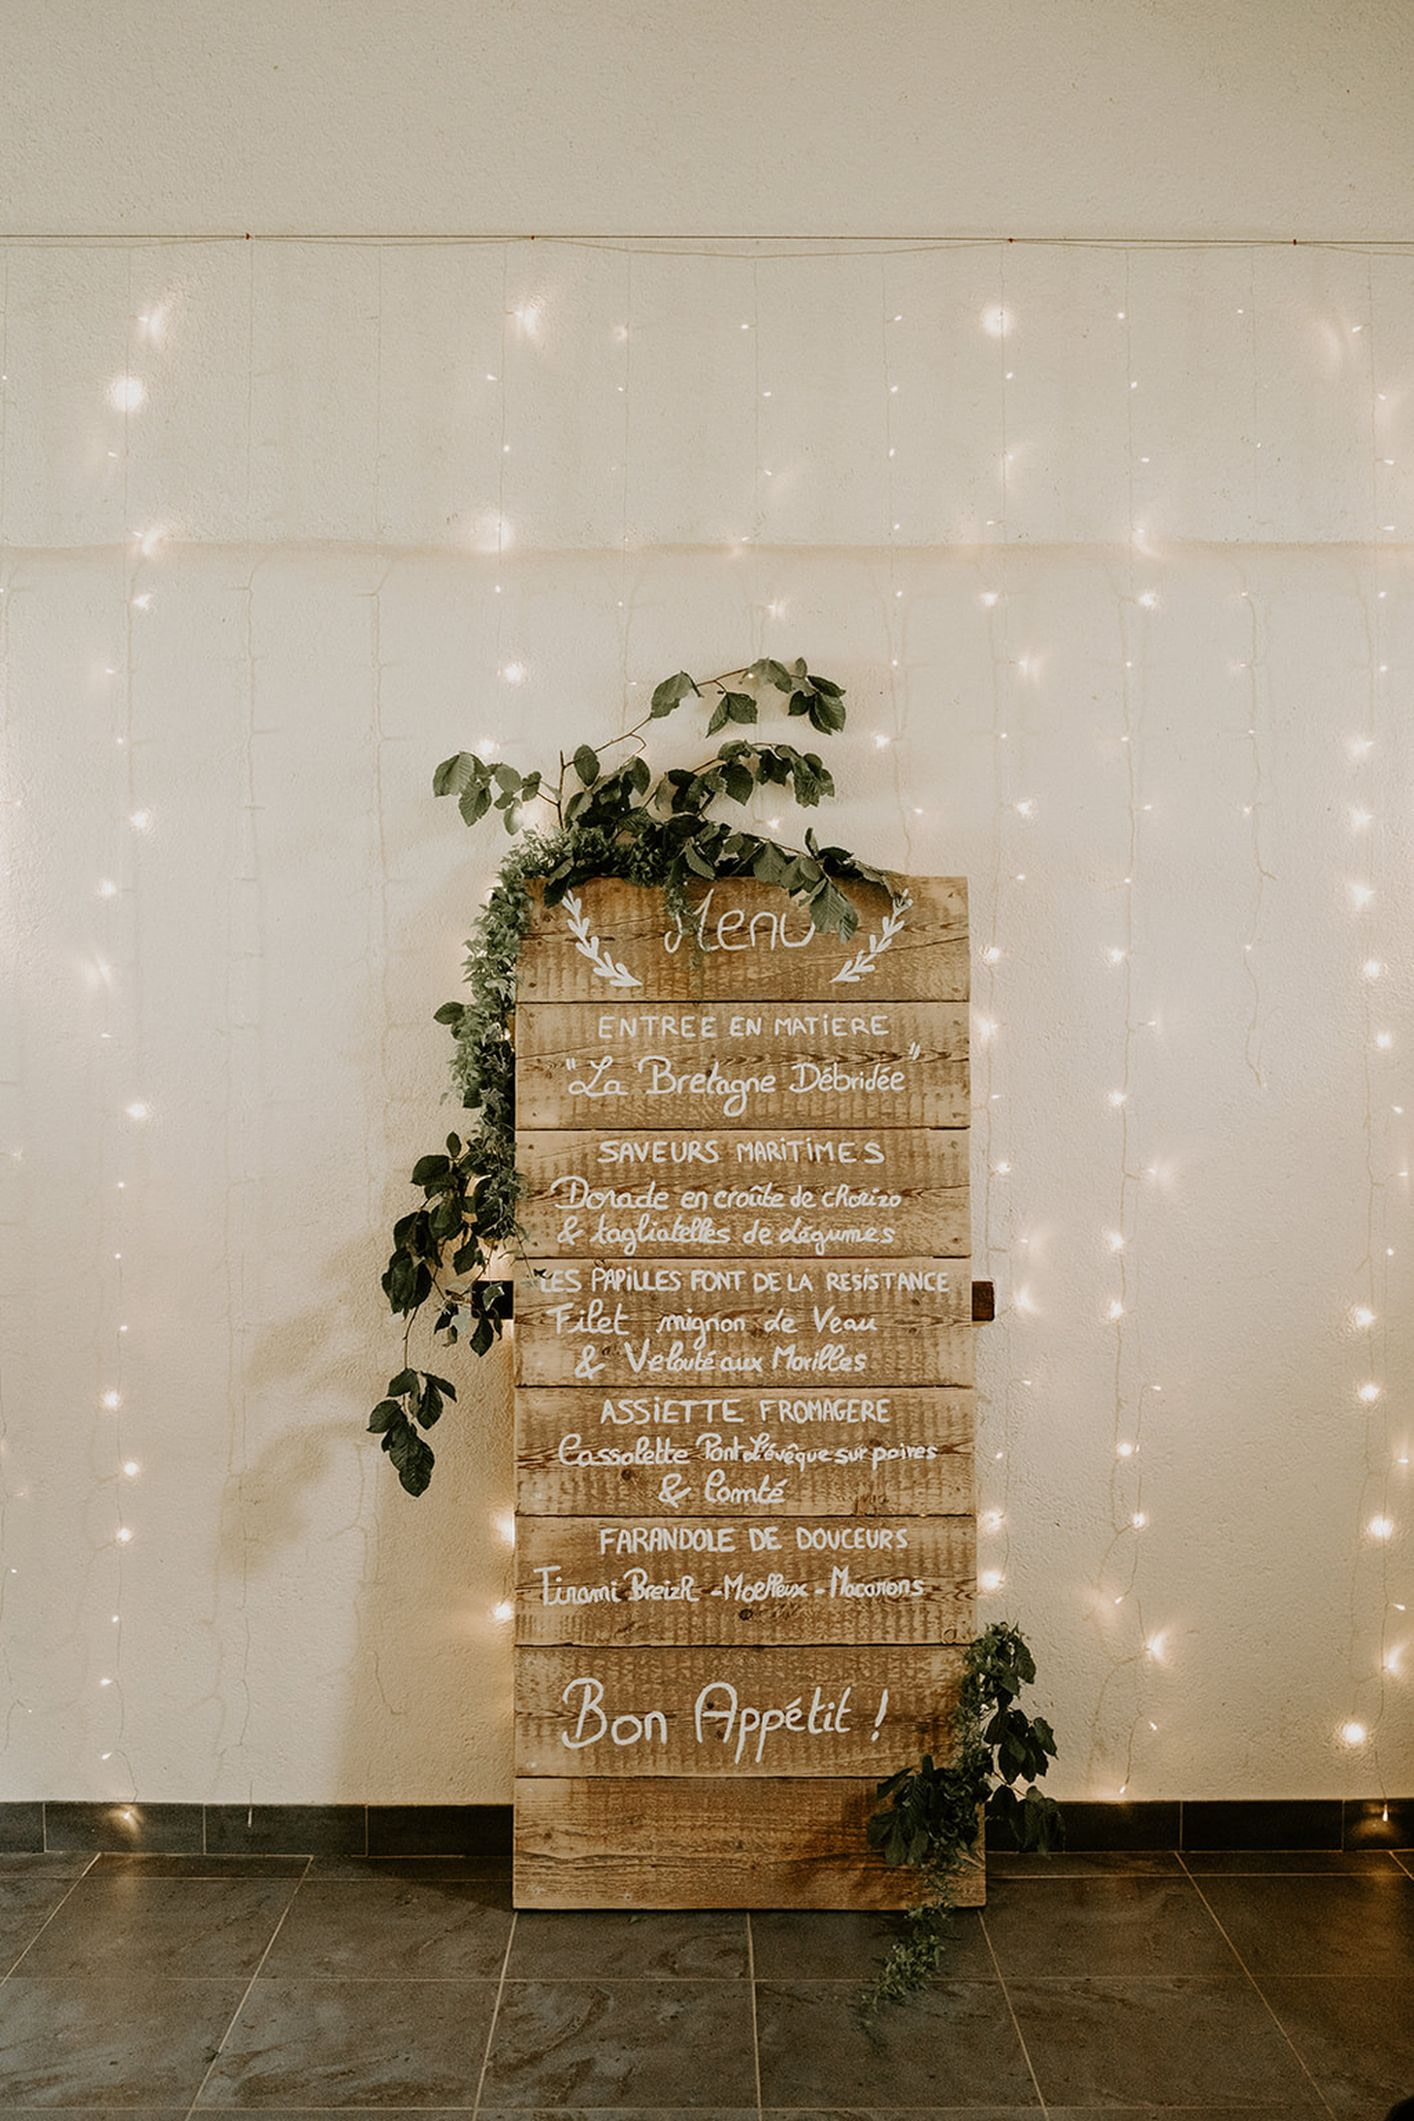 Menu
ENTREE EN MATIERE
"La Bretagne Débridée"
SAVEURS MARITIMES
Dorade en croûte de chorizo
& tagliatelles de légumes
LES PAPILLES FONT DE LA RESISTANCE
Filet mignon de Veau
& Velouté aux Morilles
ASSIETTE FROMAGERE
Cassolette Pont L'évêque sur poires
& Comté
FARANDOLE DE DOUCEURS
Tirami Breizh - Moelleux - Macarons
Bon Appétit !